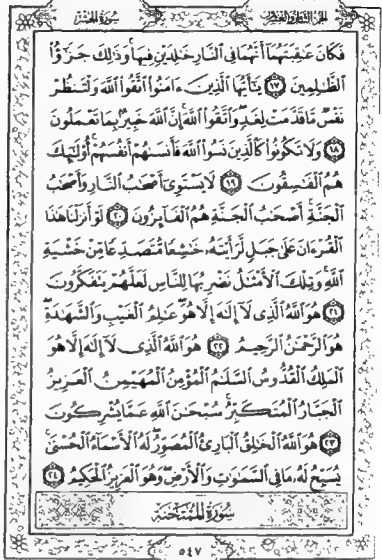 الجزء الثامن والعشرون سورة الحشر
فَكَانَ عَٰقِبَتَهُمَآ أَنَّهُمَا فِى ٱلنَّارِ خَٰلِدَيْنِ فِيهَا ۚ وَذَٰلِكَ جَزَٰٓؤُا۟
ٱلظَّٰلِمِينَ ١٧ يَٰٓأَيُّهَا ٱلَّذِينَ ءَامَنُوا۟ ٱتَّقُوا۟ ٱللَّهَ وَلْتَنظُرْ
نَفْسٌ مَّا قَدَّمَتْ لِغَدٍ ۖ وَٱتَّقُوا۟ ٱللَّهَ ۚ إِنَّ ٱللَّهَ خَبِيرٌۢ بِمَا تَعْمَلُونَ
١٨ وَلَا تَكُونُوا۟ كَٱلَّذِينَ نَسُوا۟ ٱللَّهَ فَأَنسَىٰهُمْ أَنفُسَهُمْ ۚ أُو۟لَٰٓئِكَ
هُمُ ٱلْفَٰسِقُونَ ١٩ لَا يَسْتَوِىٓ أَصْحَٰبُ ٱلنَّارِ وَأَصْحَٰبُ
ٱلْجَنَّةِ ۚ أَصْحَٰبُ ٱلْجَنَّةِ هُمُ ٱلْفَآئِزُونَ ٢٠ لَوْ أَنزَلْنَا هَٰذَا
ٱلْقُرْءَانَ عَلَىٰ جَبَلٍ لَّرَأَيْتَهُۥ خَٰشِعًا مُّتَصَدِّعًا مِّنْ خَشْيَةِ
ٱللَّهِ ۚ وَتِلْكَ ٱلْأَمْثَٰلُ نَضْرِبُهَا لِلنَّاسِ لَعَلَّهُمْ يَتَفَكَّرُونَ
٢١ هُوَ ٱللَّهُ ٱلَّذِى لَآ إِلَٰهَ إِلَّا هُوَ ۖ عَٰلِمُ ٱلْغَيْبِ وَٱلشَّهَٰدَةِ ۖ
هُوَ ٱلرَّحْمَٰنُ ٱلرَّحِيمُ ٢٢ هُوَ ٱللَّهُ ٱلَّذِى لَآ إِلَٰهَ إِلَّا هُوَ
ٱلْمَلِكُ ٱلْقُدُّوسُ ٱلسَّلَٰمُ ٱلْمُؤْمِنُ ٱلْمُهَيْمِنُ ٱلْعَزِيزُ
ٱلْجَبَّارُ ٱلْمُتَكَبِّرُ ۚ سُبْحَٰنَ ٱللَّهِ عَمَّا يُشْرِكُونَ
٢٣ هُوَ ٱللَّهُ ٱلْخَٰلِقُ ٱلْبَارِئُ ٱلْمُصَوِّرُ ۖ لَهُ ٱلْأَسْمَآءُ ٱلْحُسْنَىٰ ۚ
يُسَبِّحُ لَهُۥ مَا فِى ٱلسَّمَٰوَٰتِ وَٱلْأَرْضِ ۖ وَهُوَ ٱلْعَزِيزُ ٱلْحَكِيمُ ٢٤
سُورَةُ المُمْتَحنَةِ
٥٤٧